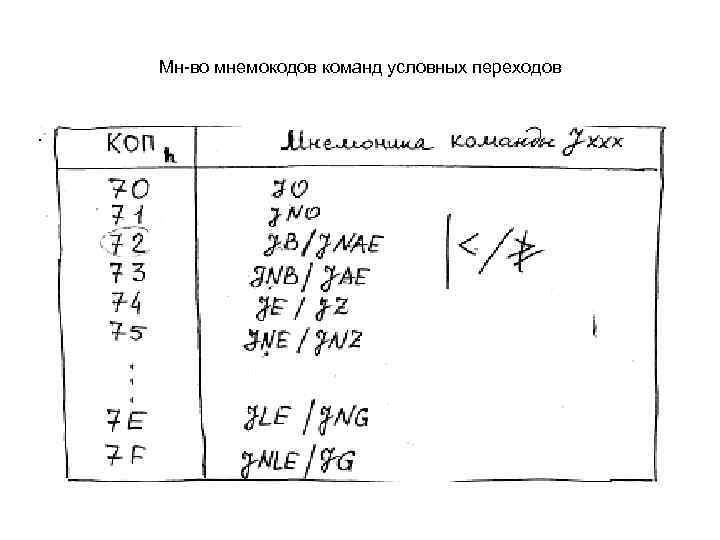 Мн-во мнемокодов команд условных переходов
КОП h Мнемоника команды Jxxx
70 JO
71 JNO
72 JB/JNAE |</≱
73 JNB/JAE
74 JE/JZ
75 JNE/JNZ
⋮
7E JLE/JNG
7F JNLE/JG